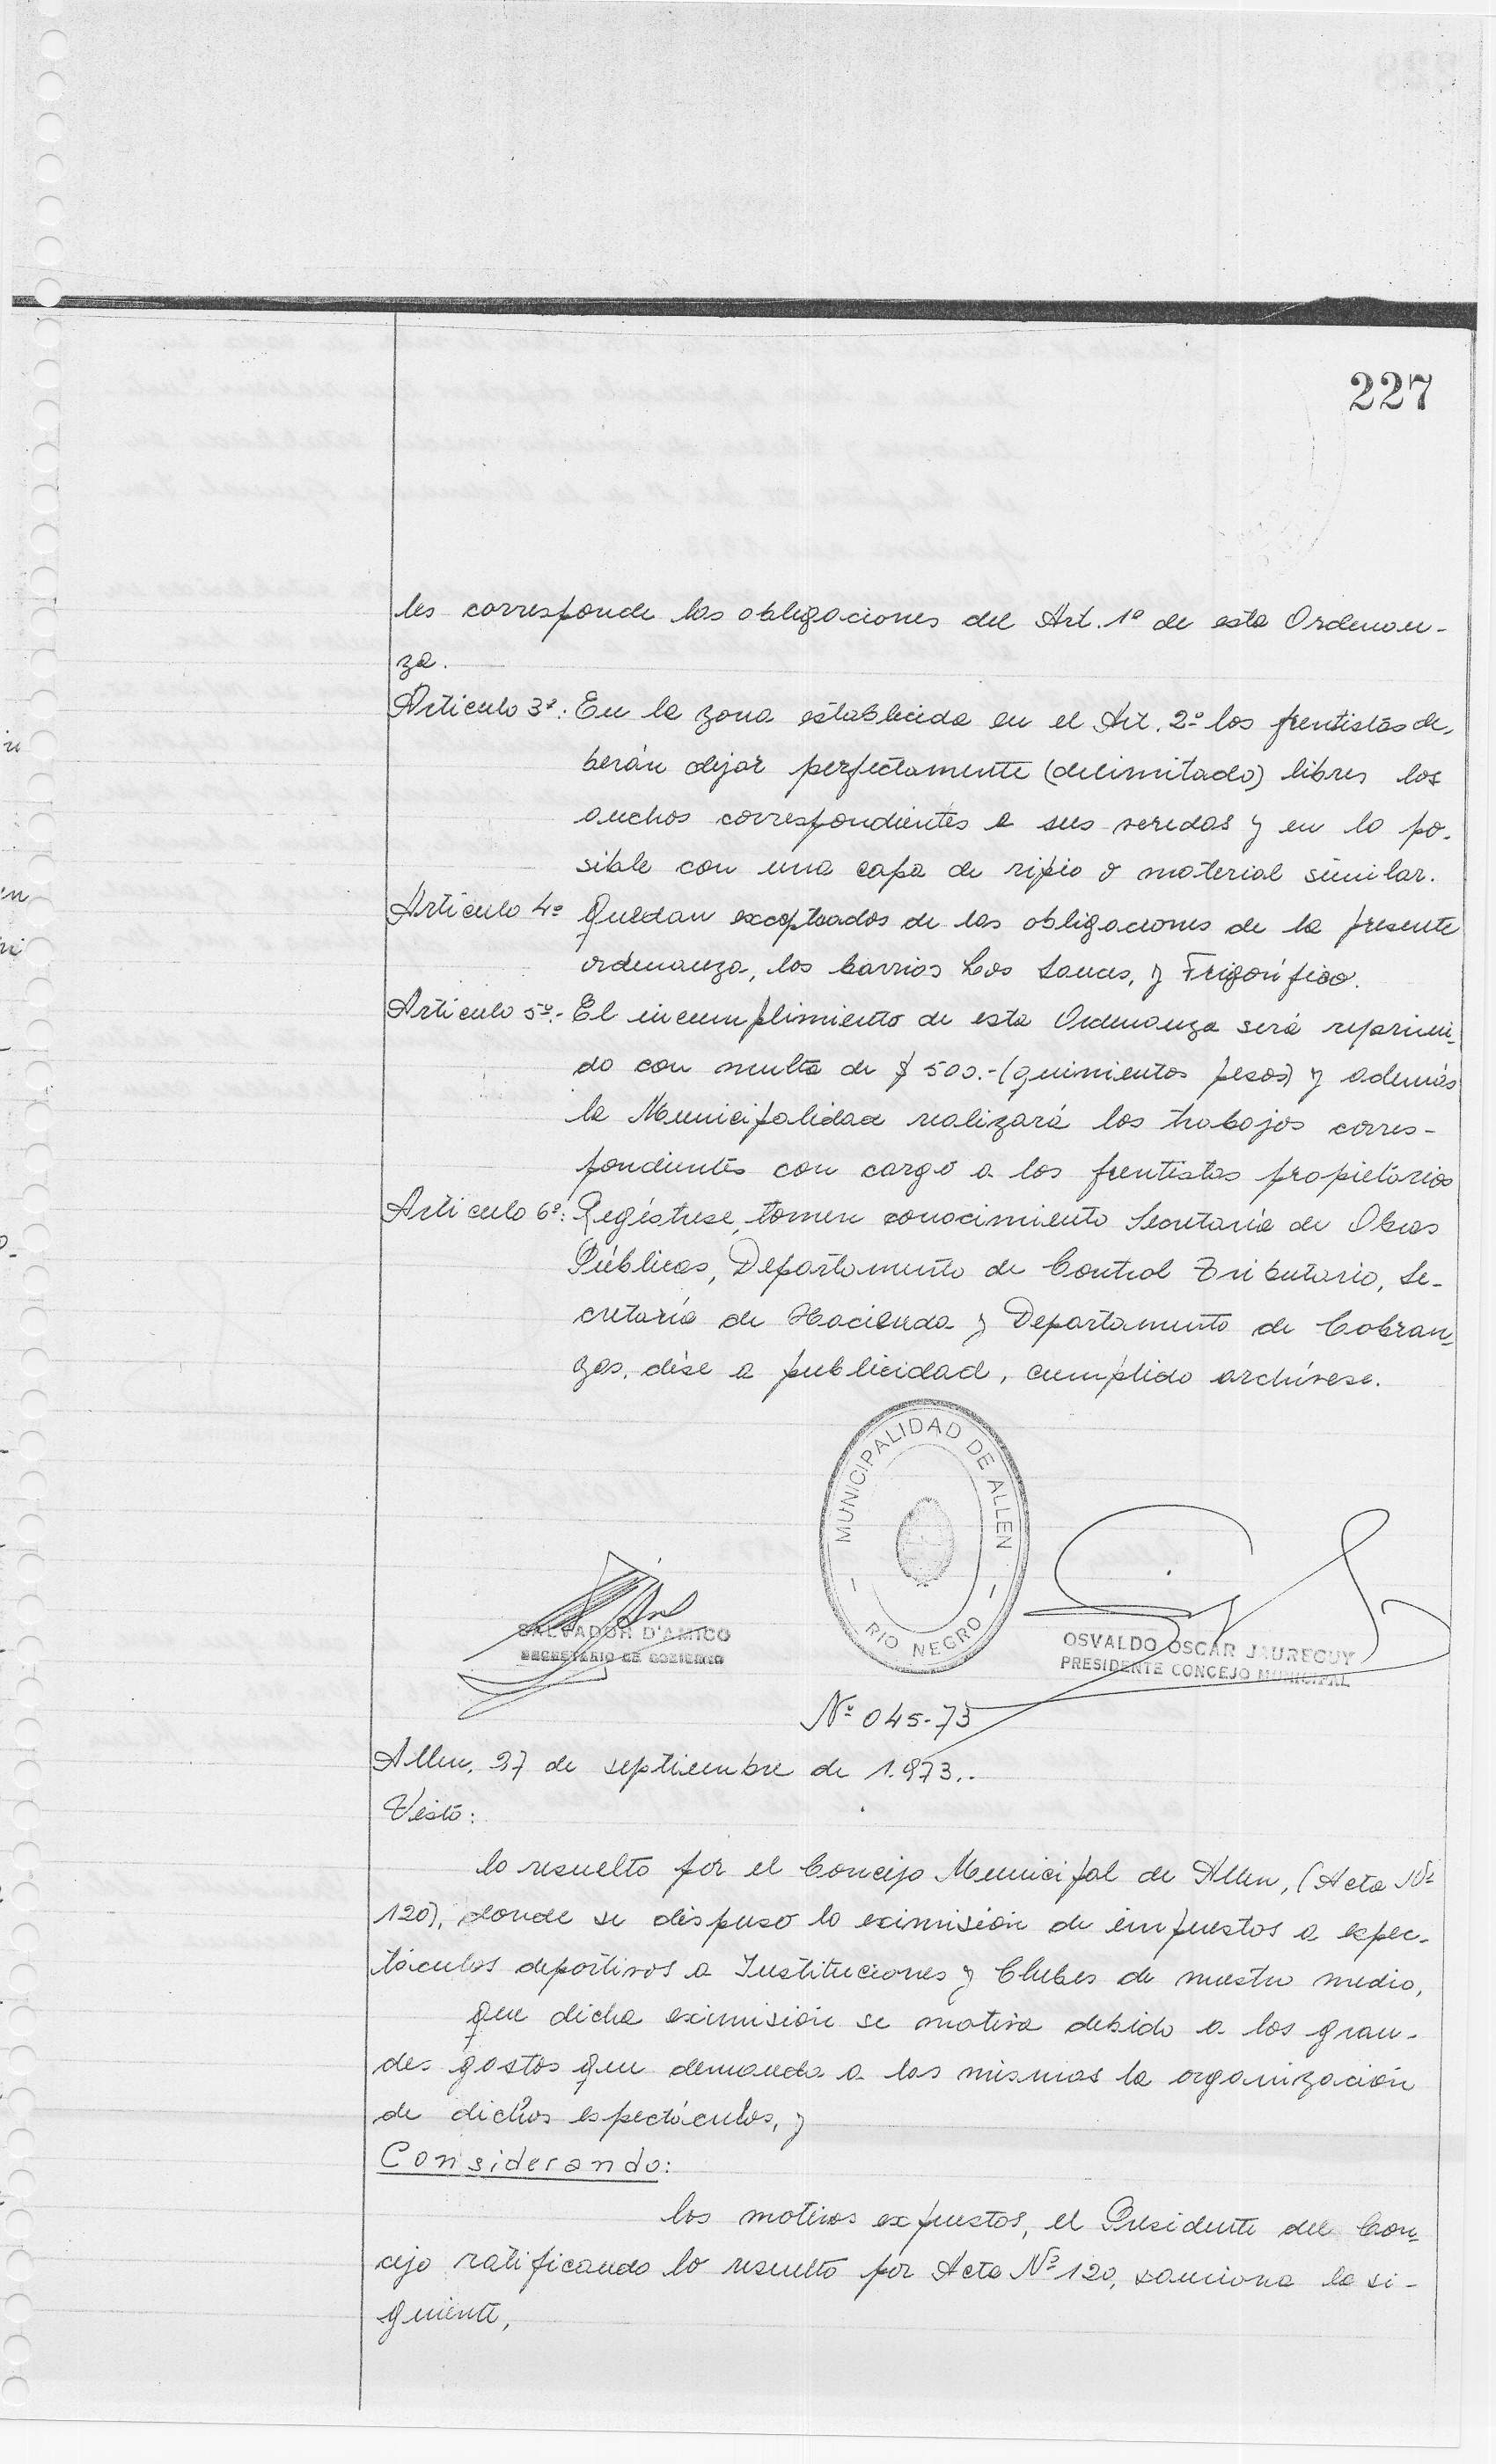 227
les corresponde las obligaciones del Art. 1º de esta Ordenan-
za.
Artículo 3º: En la zona establecida en el Art. 2º los frentistas de-
berán dejar perfectamente (delimitado) libres los
anchos correspondientes a sus veredas y en lo po-
sible con una capa de ripio o material similar.
Artículo 4º Quedan exceptuados de las obligaciones de la presente
ordenanza, los barrios Los Sauces, y Frigorífico.
Artículo 5º.- El incumplimiento de esta Ordenanza será reprimi-
do con multa de $ 500.- (quinientos pesos) y además
la Municipalidad realizará los trabajos corres-
pondientes con cargo a los frentistas propietarios
Artículo 6º: Regístrese, tomen conocimiento Secretaría de Obras
Públicas, Departamento de Control Tributario, Se-
cretaría de Hacienda y Departamento de Cobran-
zas, dése a publicidad, cumplido archívese.
MUNICIPALIDAD DE ALLEN
- RIO NEGRO -
SALVADOR D'AMICO
SECRETARIO DE GOBIERNO
OSVALDO OSCAR JAUREGUY
PRESIDENTE CONCEJO MUNICIPAL
Nº 045-73
Allen, 27 de septiembre de 1.973..
Visto:
lo resuelto por el Concejo Municipal de Allen, (Acta Nº
120), donde se dispuso la eximisión de impuestos a espec-
táculos deportivos a Instituciones y Clubes de nuestro medio,
que dicha eximisión se motiva debido a los gran-
des gastos que demanda a las mismas la organización
de dichos espectáculos, y
Considerando:
los motivos expuestos, el Presidente del Con-
cejo ratificando lo resuelto por Acta Nº 120, sanciona la si-
guiente,